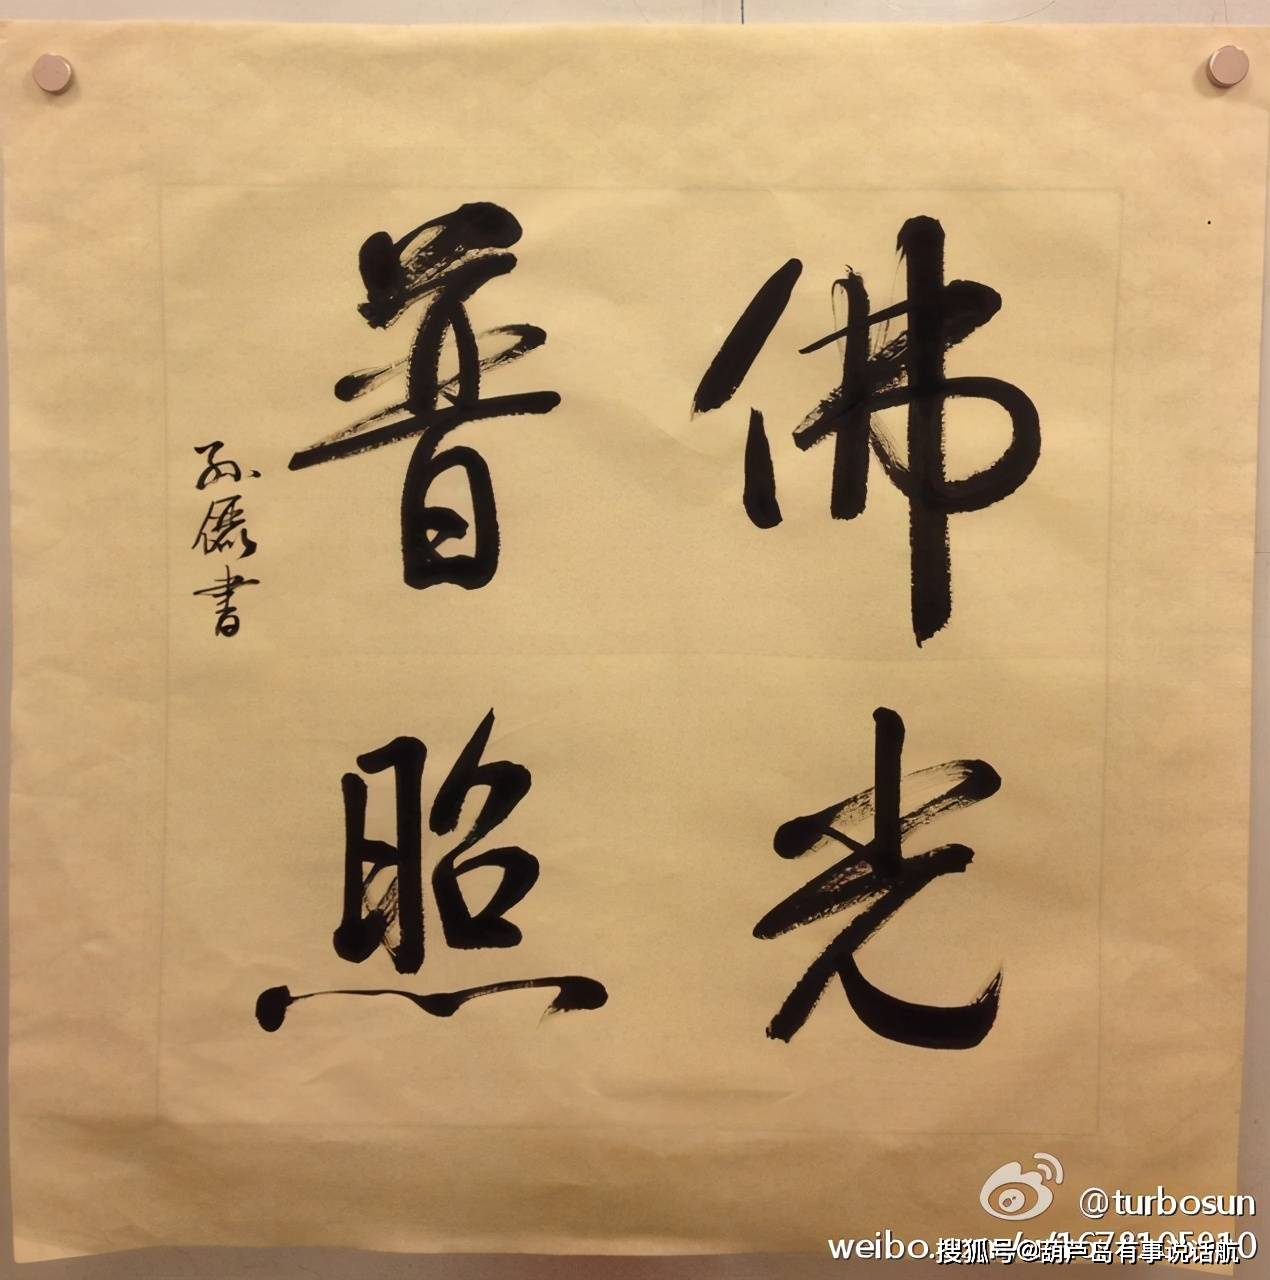 佛光
普照
孙磊书
@turbosun
weibo.com/u/1678105910
搜狐号@葫芦岛有事说话航